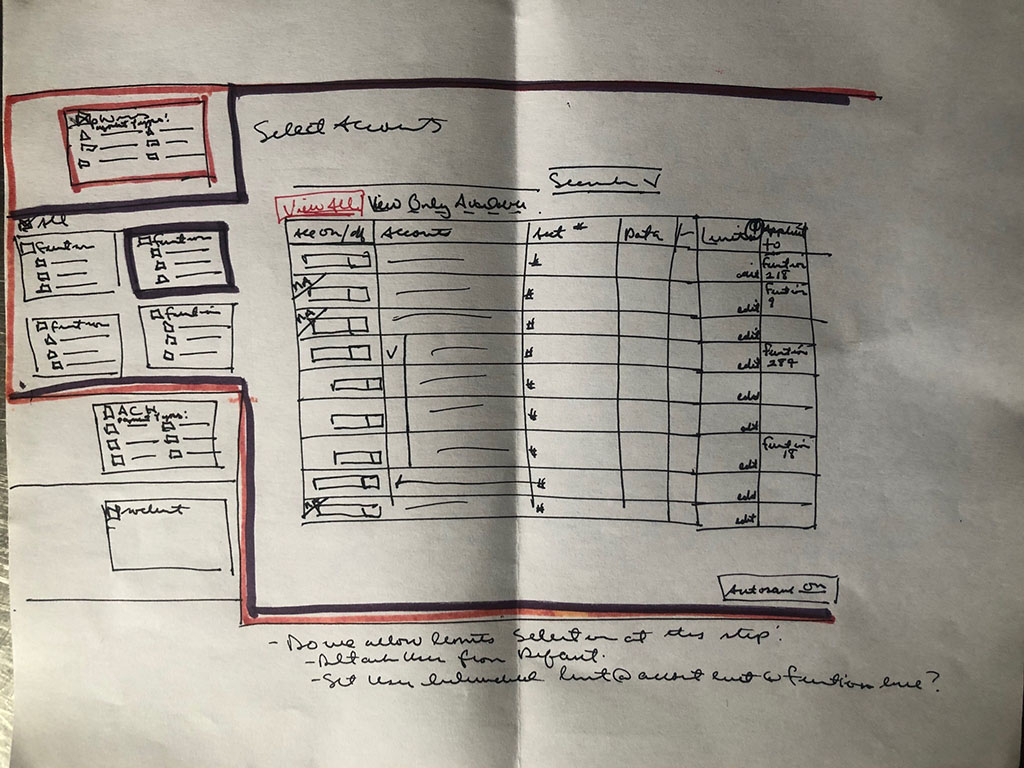 Payment Types:
Select Accounts
Search
View All View Only Available
All
Function
Function
Function
Function
Acc on/off Accounts Acct # Data Limits Applied to
# edit Function 218
NA # edit Function 9
NA # edit
# edit Function 284
# edit
# edit
# edit Function 18
# edit
NA # edit
ACH
Payment Types:
Autosave On
- Do we allow limits selection at this step?
- Detach User from Default.
- Set User limit @ account limit @ function level?